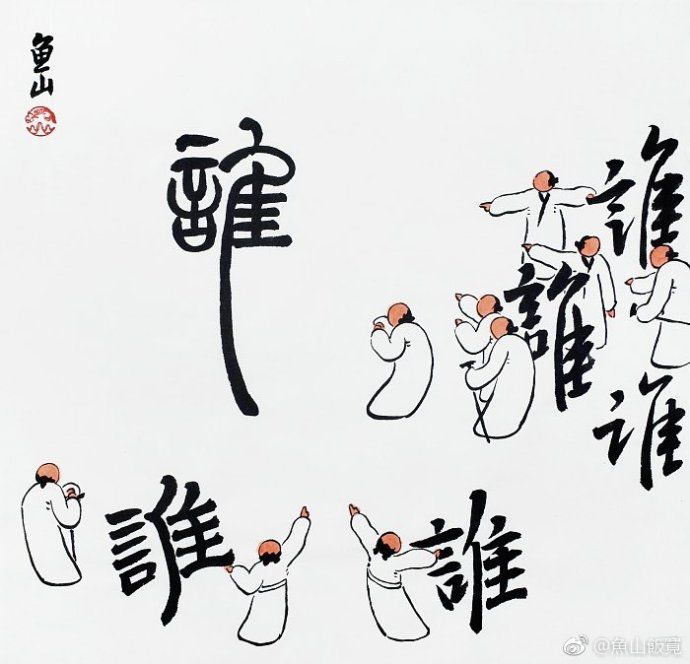 鱼山
誰
誰
誰
谁
誰
誰
@魚山飯寬